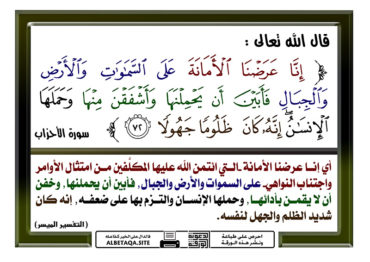 قال الله تعالى :
﴿ إِنَّا عَرَضْنَا ٱلْأَمَانَةَ عَلَى ٱلسَّمَٰوَٰتِ وَٱلْأَرْضِ
وَٱلْجِبَالِ فَأَبَيْنَ أَن يَحْمِلْنَهَا وَأَشْفَقْنَ مِنْهَا وَحَمَلَهَا
ٱلْإِنسَٰنُ ۖ إِنَّهُۥ كَانَ ظَلُومًا جَهُولًا ٧٢ ﴾ سورة الأحزاب
أي إنـا عرضنا الأمانة ـالـتي ائتمن الله عليها المكلَّفين مـن امتثال الأوامر
واجتناب النواهيـ على السموات والأرض والجبال , فأبين أن يحملنها , وخفن
أن لا يقمـن بأدائهـا , وحملها الإنسـان والتـزم بها على ضعفـه , إنه كان
شديد الظلم والجهل لنفسه .
( التفسير الميسر )
احرص على طباعة
ونشر هذه الورقة
ALBETAQA.SITE